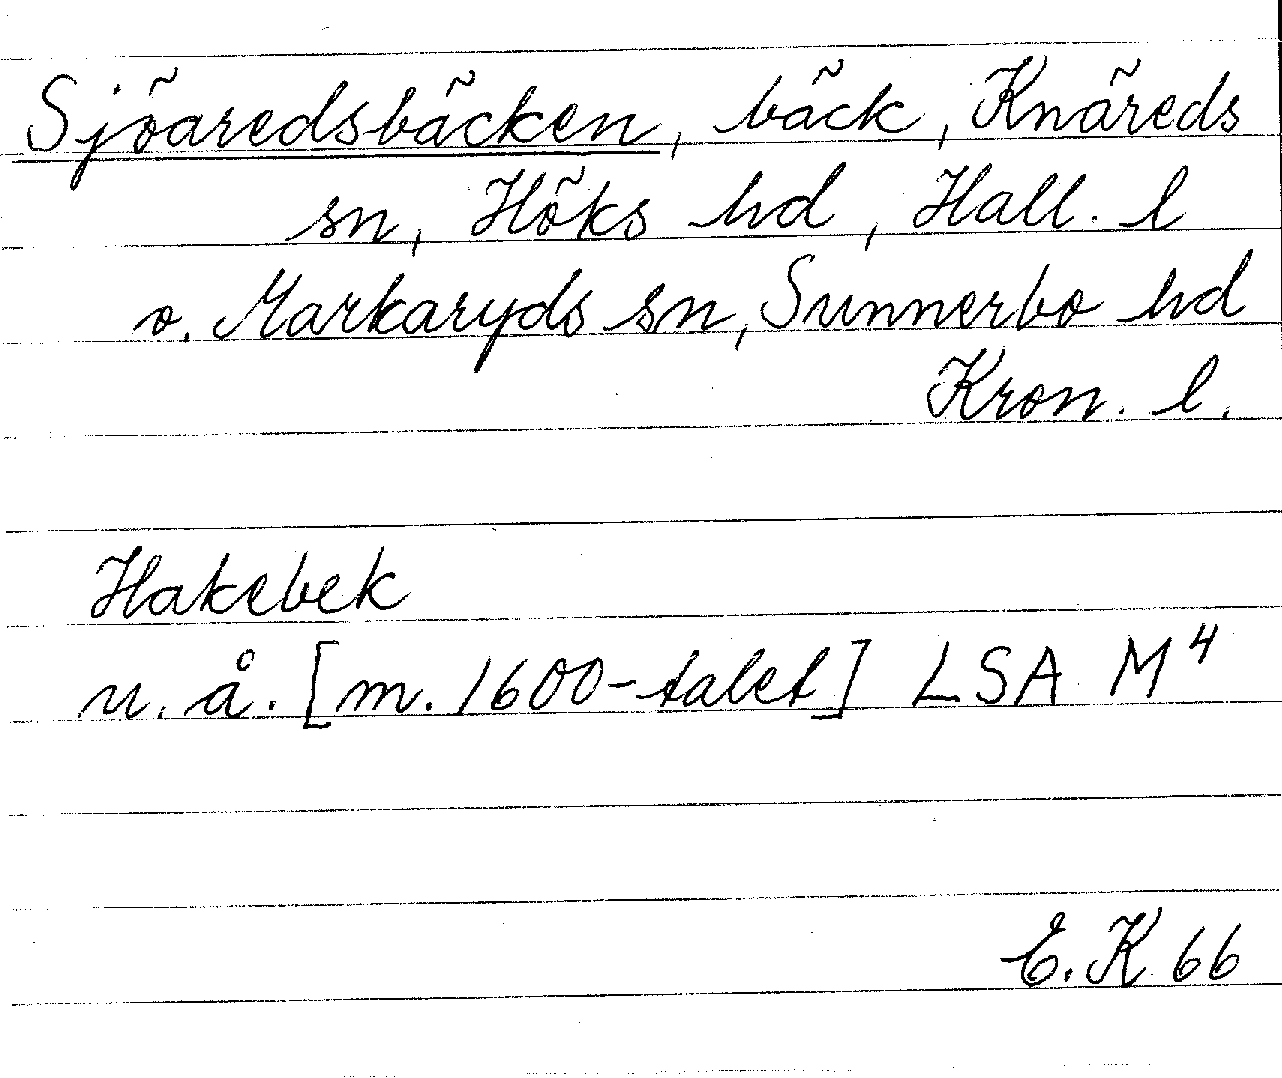 Sjöaredsbäcken, bäck, Knäreds
sn, Höks hd, Hall. l
o. Markaryds sn, Sunnerbo hd
Kron. l.
Hakebek
u. å. [m. 1600-talet] LSA M⁴
E.K 66